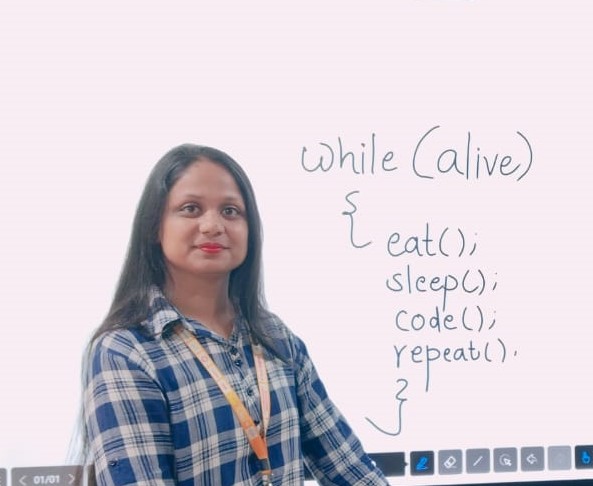 while (alive)
{
eat();
sleep();
code();
repeat().
}
01/01